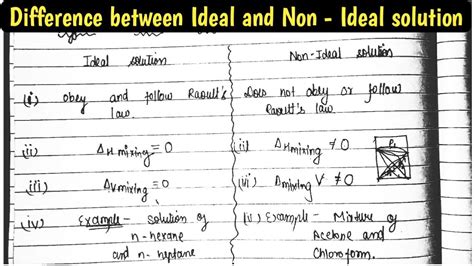 Difference between Ideal and Non - Ideal solution
Ideal solution
Non-Ideal solution
(i) Obey and follow Raoult's law
Does not obey or follow Raoult's law.
(ii) ΔHmixing = 0
(ii) ΔHmixing ≠ 0
(iii) ΔVmixing = 0
(iii) Δmixing V ≠ 0
(iv) Example - solution of n-hexane and n-heptane
Example - Mixture of Acetone and Chloroform.